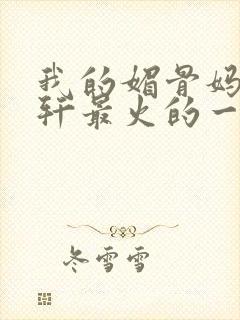 我的媚骨妈
轩最火的一
冬雪雪